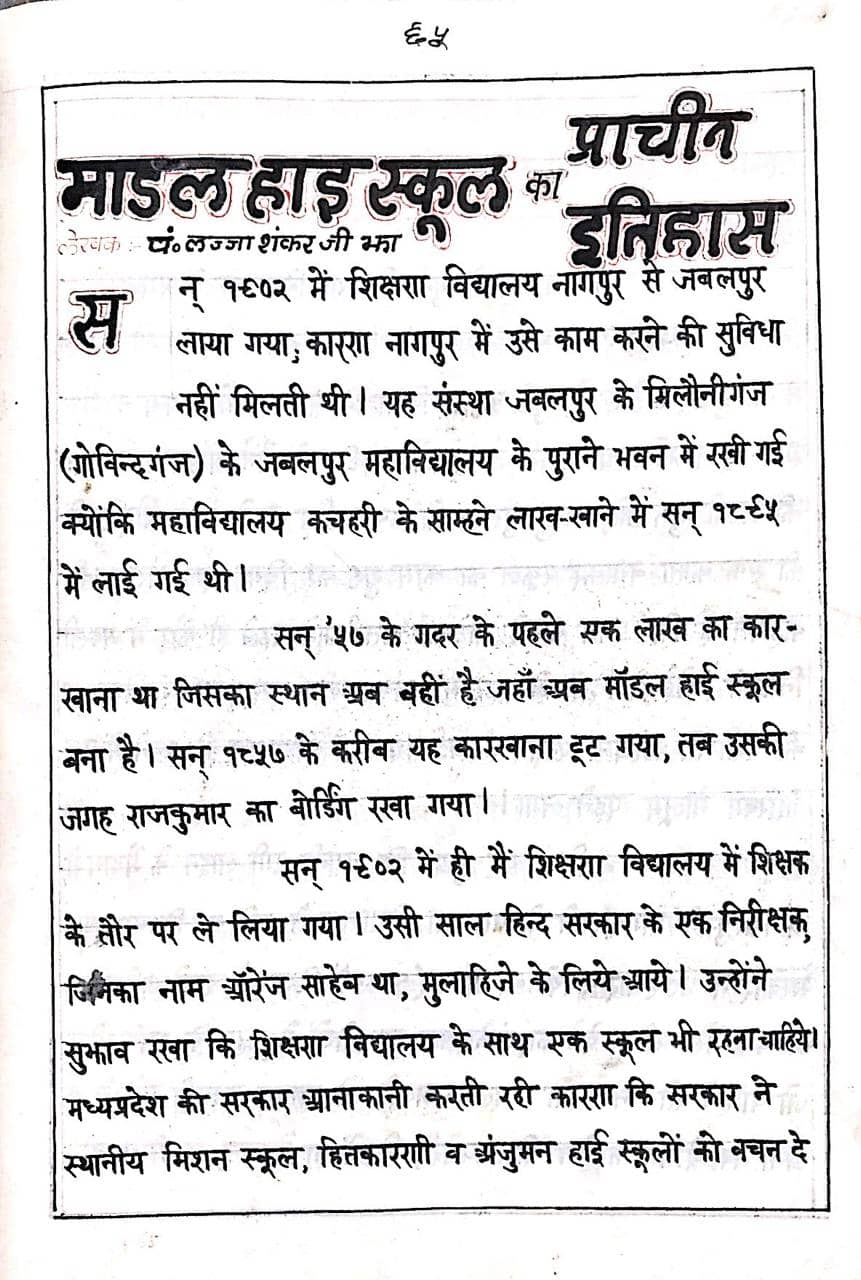 ६५
माडल हाइ स्कूल का प्राचीन इतिहास
लेखक :- पं॰ लज्जा शंकर जी झा
सन् १९०२ में शिक्षण विद्यालय नागपुर से जबलपुर
लाया गया; कारण नागपुर में उसे काम करने की सुविधा
नहीं मिलती थी। यह संस्था जबलपुर के मिलौनीगंज
(गोविन्दगंज) के जबलपुर महाविद्यालय के पुराने भवन में रखी गई
क्योंकि महाविद्यालय कचहरी के साम्हने लाख-खाने में सन् १८९५
में लाई गई थी।
सन् '५७ के गदर के पहले एक लाख का कार-
खाना था जिसका स्थान अब वहीं है जहाँ अब मॉडल हाई स्कूल
बना है। सन् १८५७ के करीब यह कारखाना टूट गया, तब उसकी
जगह राजकुमार का बोर्डिंग रखा गया।
सन् १९०२ में ही मैं शिक्षण विद्यालय में शिक्षक
के तौर पर ले लिया गया। उसी साल हिन्द सरकार के एक निरीक्षक,
जिनका नाम ऑरेंज साहेब था, मुलाहिजे के लिये आये। उन्होंने
सुझाव रखा कि शिक्षण विद्यालय के साथ एक स्कूल भी रहना चाहिये।
मध्यप्रदेश की सरकार आनाकानी करती रही कारण कि सरकार ने
स्थानीय मिशन स्कूल, हितकारणी व अंजुमन हाई स्कूलों को वचन दे